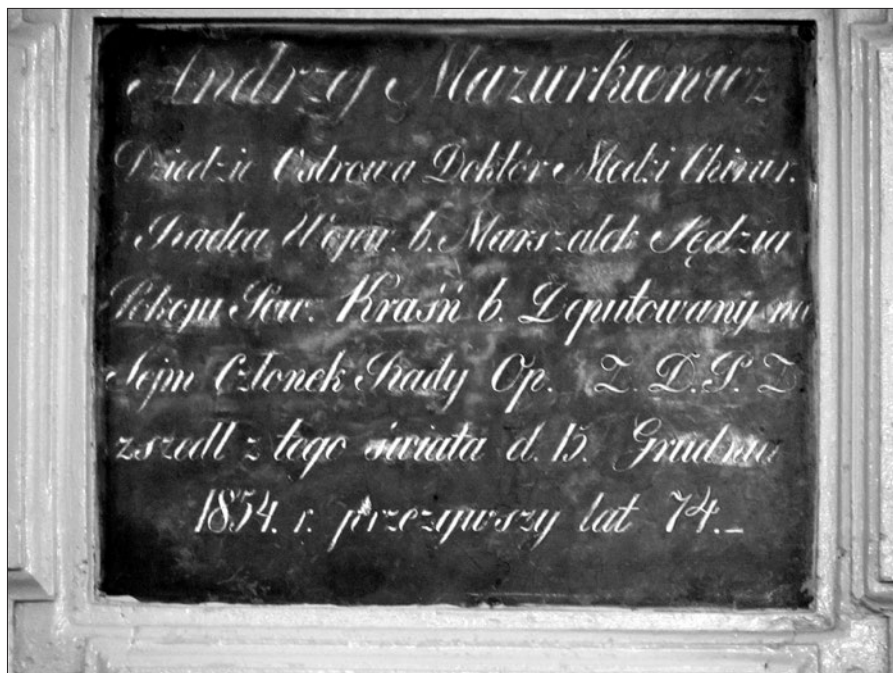 Andrzej Mazurkiewicz
Dziedzic Ostrowa Doktór Medżi Chirur.
Radca Wojew. b. Marszałek Sędzia
Pokoju Pow. Kraśń b. Deputowany na
Sejm Członek Rady Op. Z. D. P. Z
zszedł z tego świata d. 15. Grudnia
1854. r. przeżywszy lat 74.